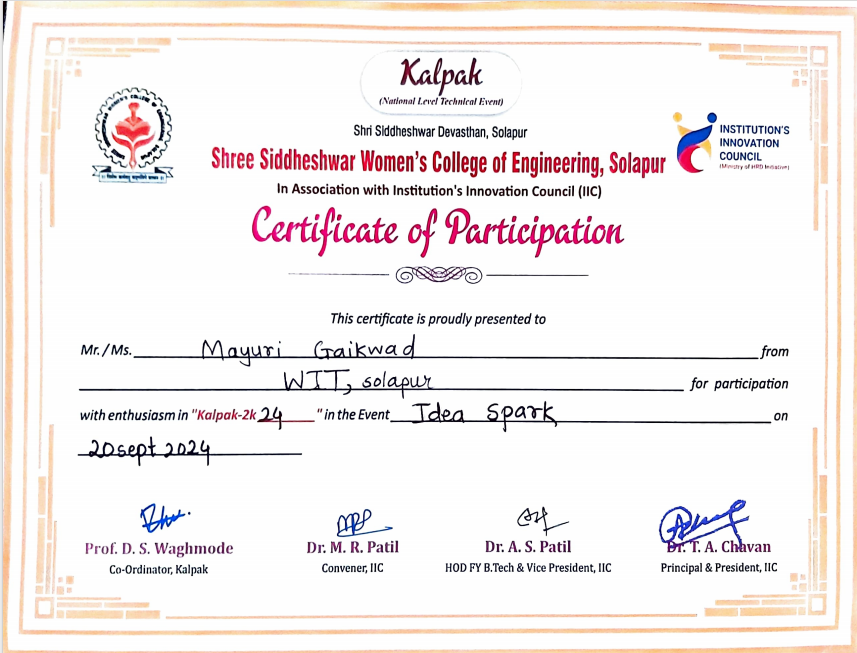 Kalpak
(National Level Technical Event)
Shri Siddheshwar Devasthan, Solapur
Shree Siddheshwar Women's College of Engineering, Solapur
In Association with Institution's Innovation Council (IIC)
INSTITUTION'S
INNOVATION
COUNCIL
(Ministry of HRD Initiative)
Certificate of Participation
This certificate is proudly presented to
Mr./Ms. Mayuri Gaikwad from
WIT, solapur for participation
with enthusiasm in "Kalpak-2k 24 " in the Event Idea Spark on
20 sept 2024
Prof. D. S. Waghmode Dr. M. R. Patil Dr. A. S. Patil Dr. T. A. Chavan
Co-Ordinator, Kalpak Convener, IIC HOD FY B.Tech & Vice President, IIC Principal & President, IIC